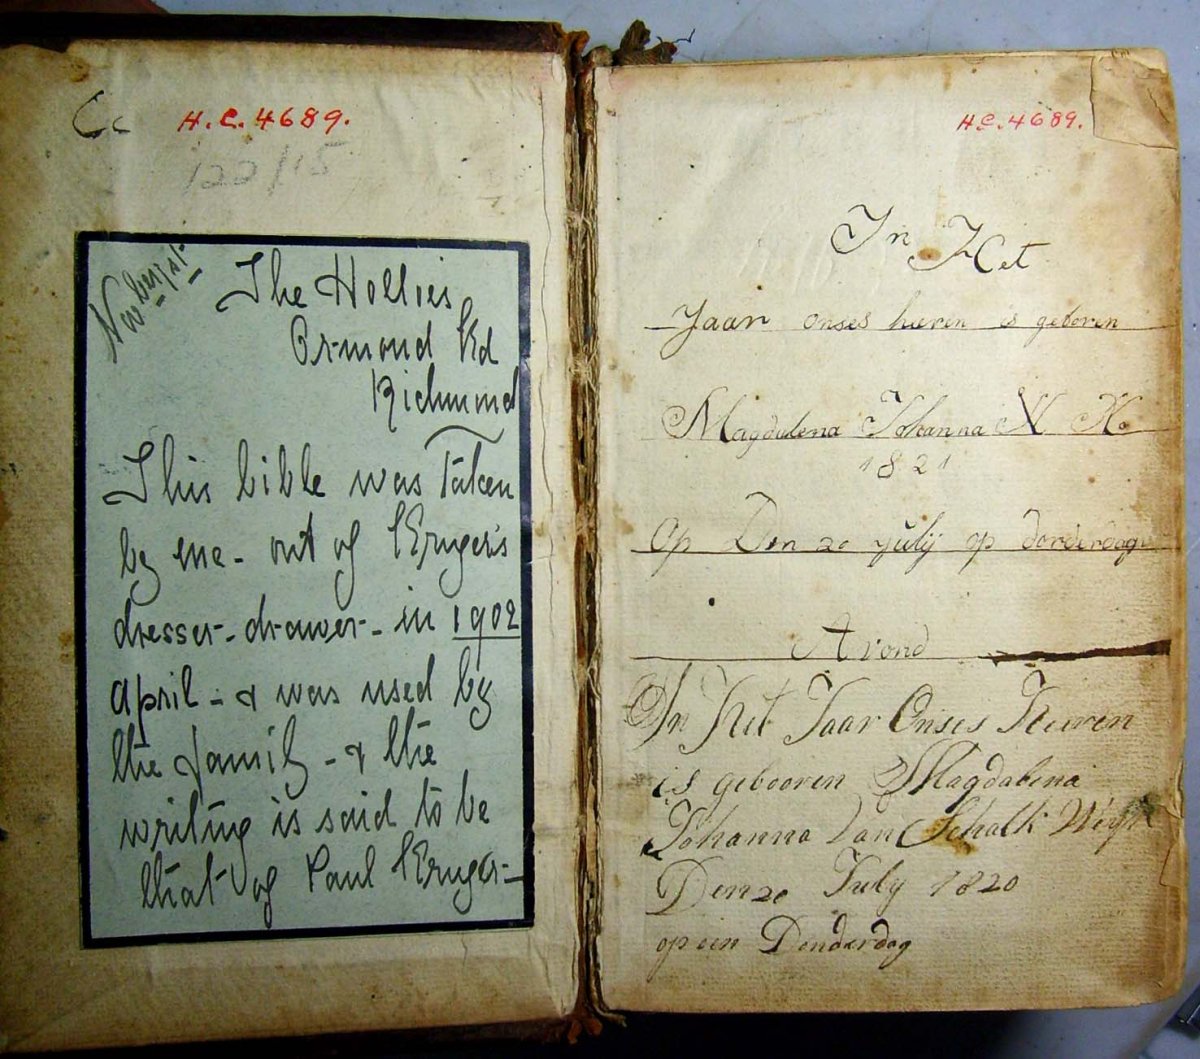 H.C.4689.
122/15
November 1st
The Hollies
Ormond Rd
Richmond
This bible was Taken
by me - out of Kruger's
dresser - drawer - in 1902
april - & was used by
the family - & the
writing is said to be
that of Paul Kruger -
H.C.4689.
In Het
Jaar onses heeren is geboren
Magdalena Johanna
1821
op Den 20 july op donderdag
Avond
In Het Jaar Onses Heeren
is gebooren Magdalena
Johanna Van Schalk Wijk
Den 20 July 1820
op een Donderdag